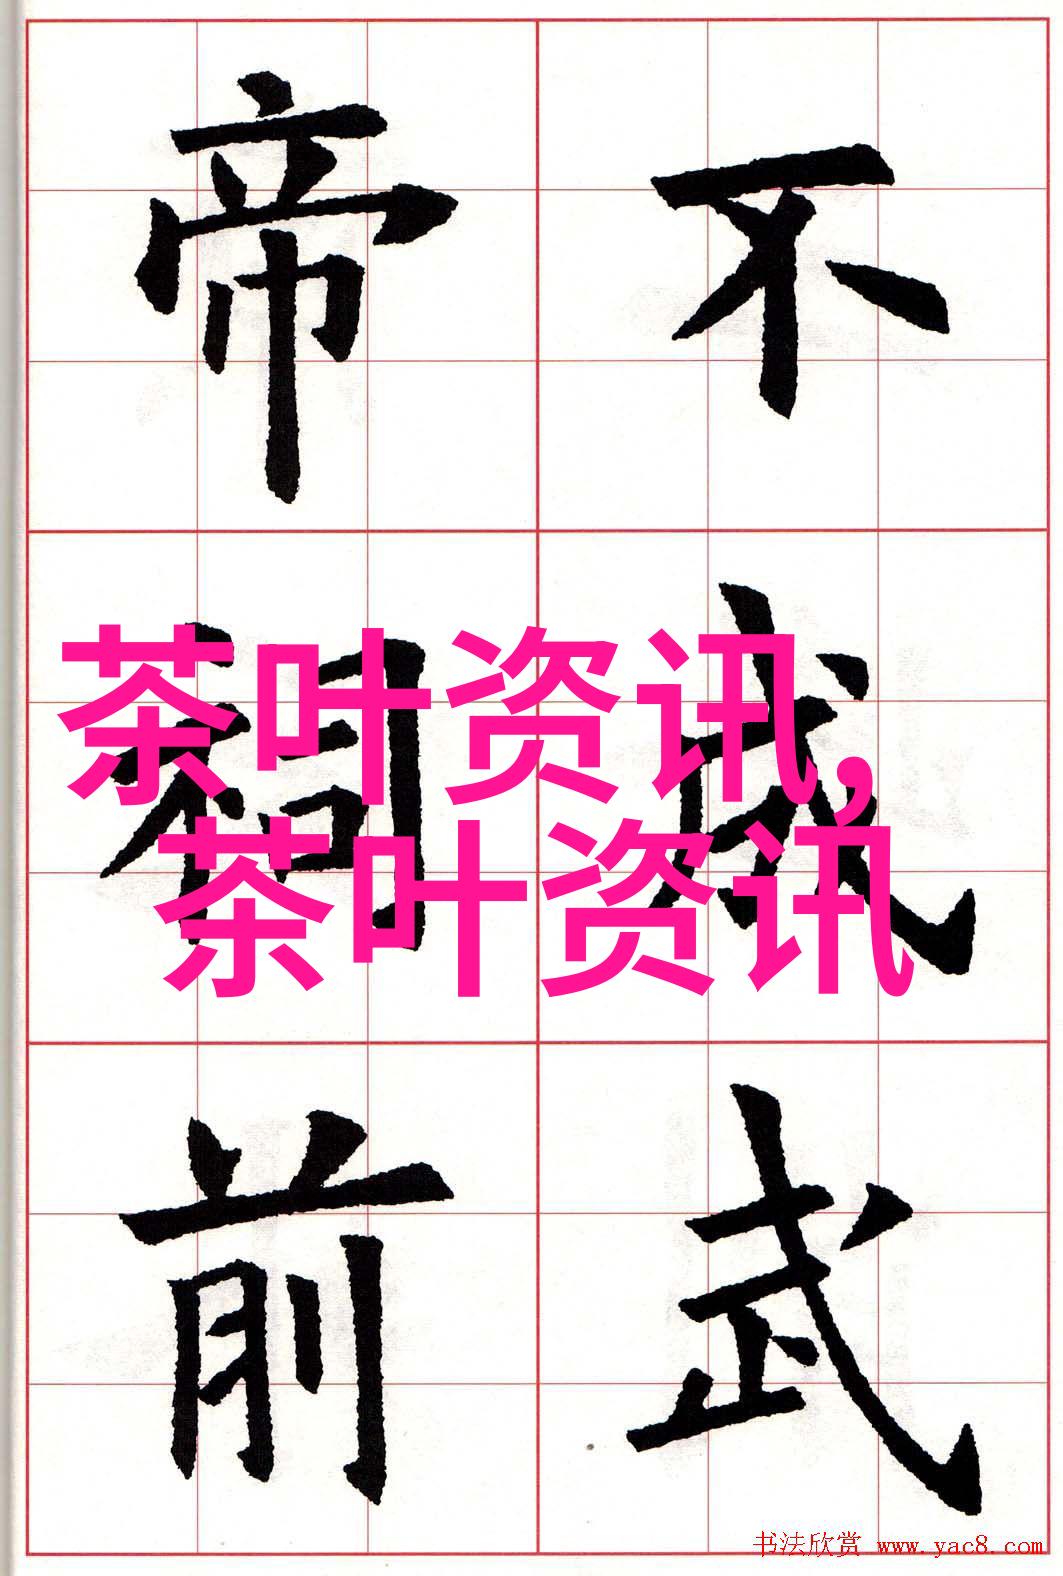 不
武
帝祠前
茶叶资讯,
茶叶资讯
书法欣赏 www.yac8.com